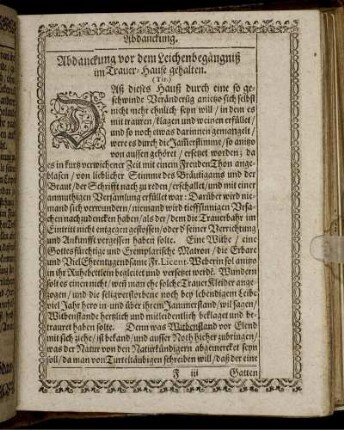 Abdanckung.
Abdanckung vor dem Leichenbegängniß
im Trauer-Hause gehalten.
(Tit:)
Daß dieses Hauß durch eine so ge-
schwinde Veränderūg anietzo sich selbst
nicht mehr ehnlich seyn will / in dem es
mit trauren / klagen und weinen erfüllet /
und so noch etwas darinnen gemangelt /
were es durch die Jam̄erstim̄e / so anitzo
von aussen gehöret / ersetzet worden; da
es in kurtz verwichener Zeit mit einem Freuden Thon ange-
blasen / von lieblicher Stimme des Bräutigams und der
Braut / der Schrifft nach zu reden / erschallet / und mit einer
anmuthigen Versamlung erfüllet war: Darüber wird nie-
mand sich verwundern / niemand wird tieffsinnigen Ursa-
chen nachzudencken haben / als der / dem die Trauerbahr im
Eintritt nicht entgegen gestossen / oder d' seiner Verrichtung
und Ankunfft vergessen haben solte. Eine Witbe / eine
Gottsfürchtige und Exemplarische Matron / die Erbare
und Viel Ehrentugendsame Fr. Licent. Weberin sel anitzo
in ihr Ruhebettlein begleitet und versetzet werdē. Wundern
solt es einen nicht / weil man ehe solche Trauer Kleider ange-
zogen / und die seligverstorbene noch bey lebendigem Leibe
viel Jahr hero in und über ihren Jammerstand / wil sagen /
Witbenstande hertzlich und mitleidentlich beklaget und be-
trauret haben solte. Denn was Witbenstand vor Elend
mit sich ziehe / ist bekand / und ausser Noth hieher zubringen /
was der Natur von den Naturkündigern abgemercket seyn
soll / da man von Turteltäubigen schreiben will / daß der eine
F iij Gatten